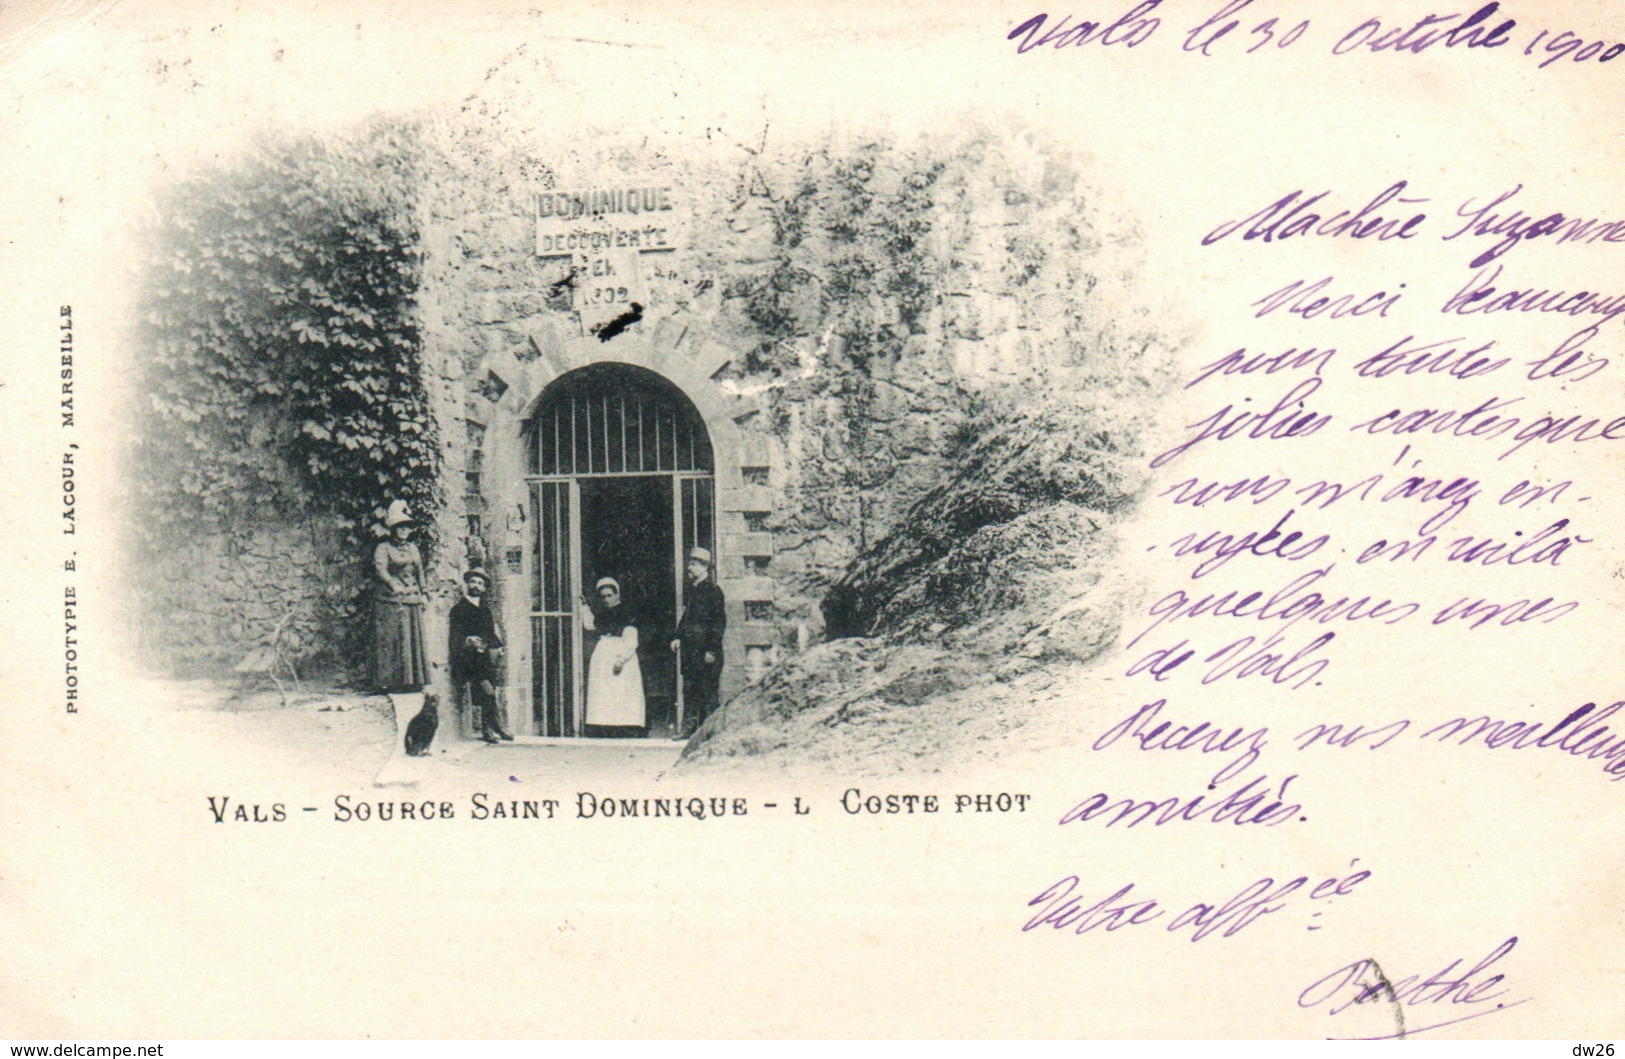 Vals le 30 Octobre 1900
DOMINIQUE
DECOUVERTE
EN
1602
Machère Suzanne
Merci beaucoup
pour toutes les
jolies cartes que
vous m'avez en-
-voyées, en voilà
quelques unes
de Vals.
Recevez nos meilleures
amitiés.
Votre affée
Berthe
PHOTOTYPIE E. LACOUR, MARSEILLE
VALS - SOURCE SAINT DOMINIQUE - L COSTE PHOT
www.delcampe.net
dw26